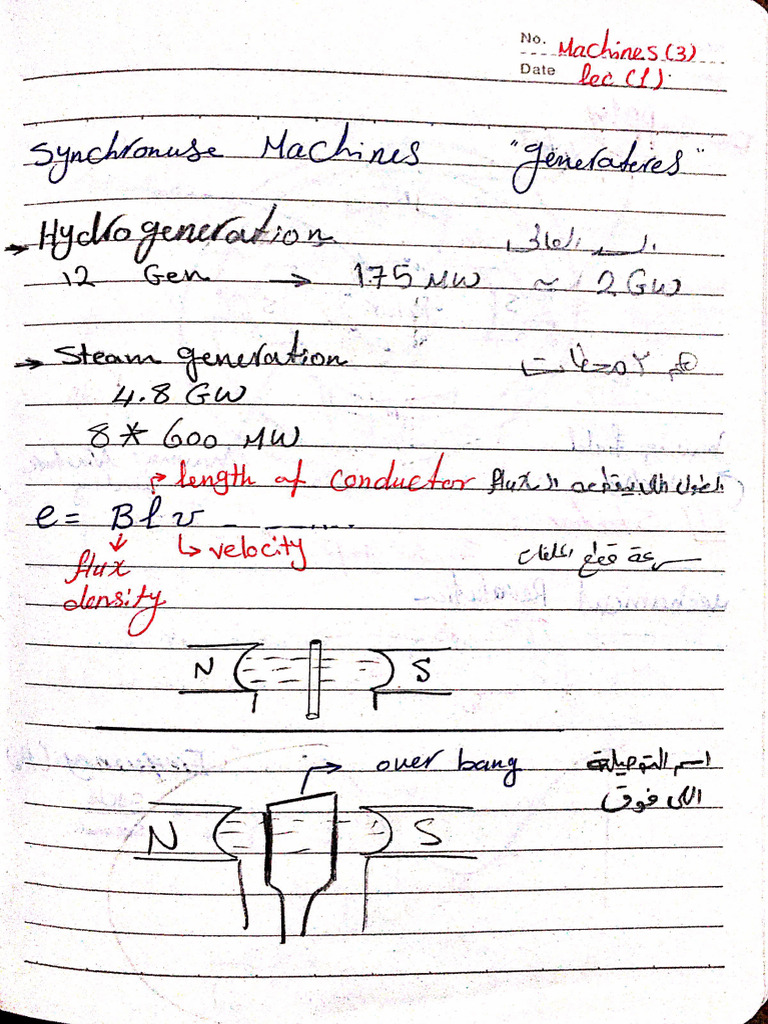 No. Machines (3)
Date Lec (1)
Synchronuse Machines "generateres"
→ Hydrogeneration السد العالى
12 Gen → 175 MW ≈ 2 GW
→ Steam generation محطات
4.8 GW
8 * 600 MW
length of conductor الطول اللى بيقطعه الـ flux
e = B l v
velocity سرعة قطع الملفات
flux
density
N S
over bang اسم التوصيلة
اللى فوق
N S